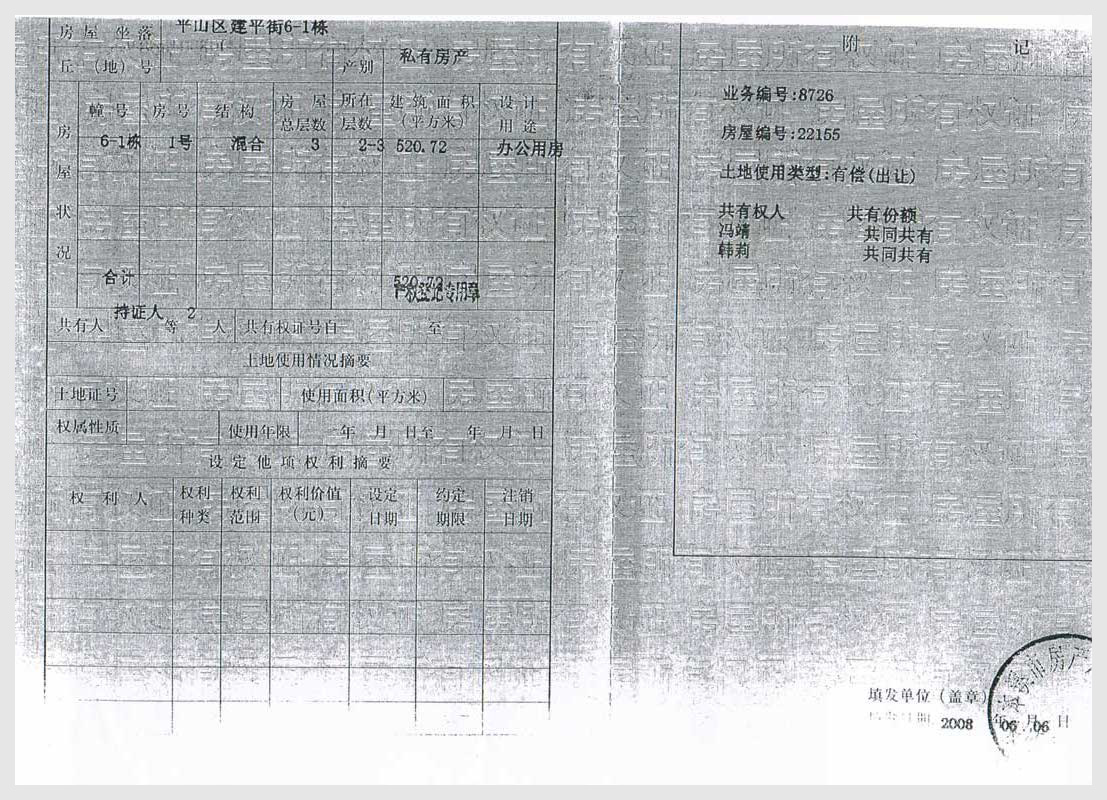 房屋坐落 平山区建平街6-1栋
丘（地）号 产别 私有房产
房屋状况
幢号 房号 结构 房屋总层数 所在层数 建筑面积（平方米） 设计用途
6-1栋 1号 混合 3 2-3 520.72 办公用房
合计 520.72
产权登记专用章
共有人 持证人 等 2 人 共有权证号自 至
土地使用情况摘要
土地证号 使用面积（平方米）
权属性质 使用年限 年 月 日至 年 月 日
设定他项权利摘要
权利人 权利种类 权利范围 权利价值（元） 设定日期 约定期限 注销日期
附 记
业务编号:8726
房屋编号:22155
土地使用类型:有偿(出让)
共有权人 共有份额
冯靖 共同共有
韩莉 共同共有
填发单位（盖章）
2008 年 06 月 06 日
市房产